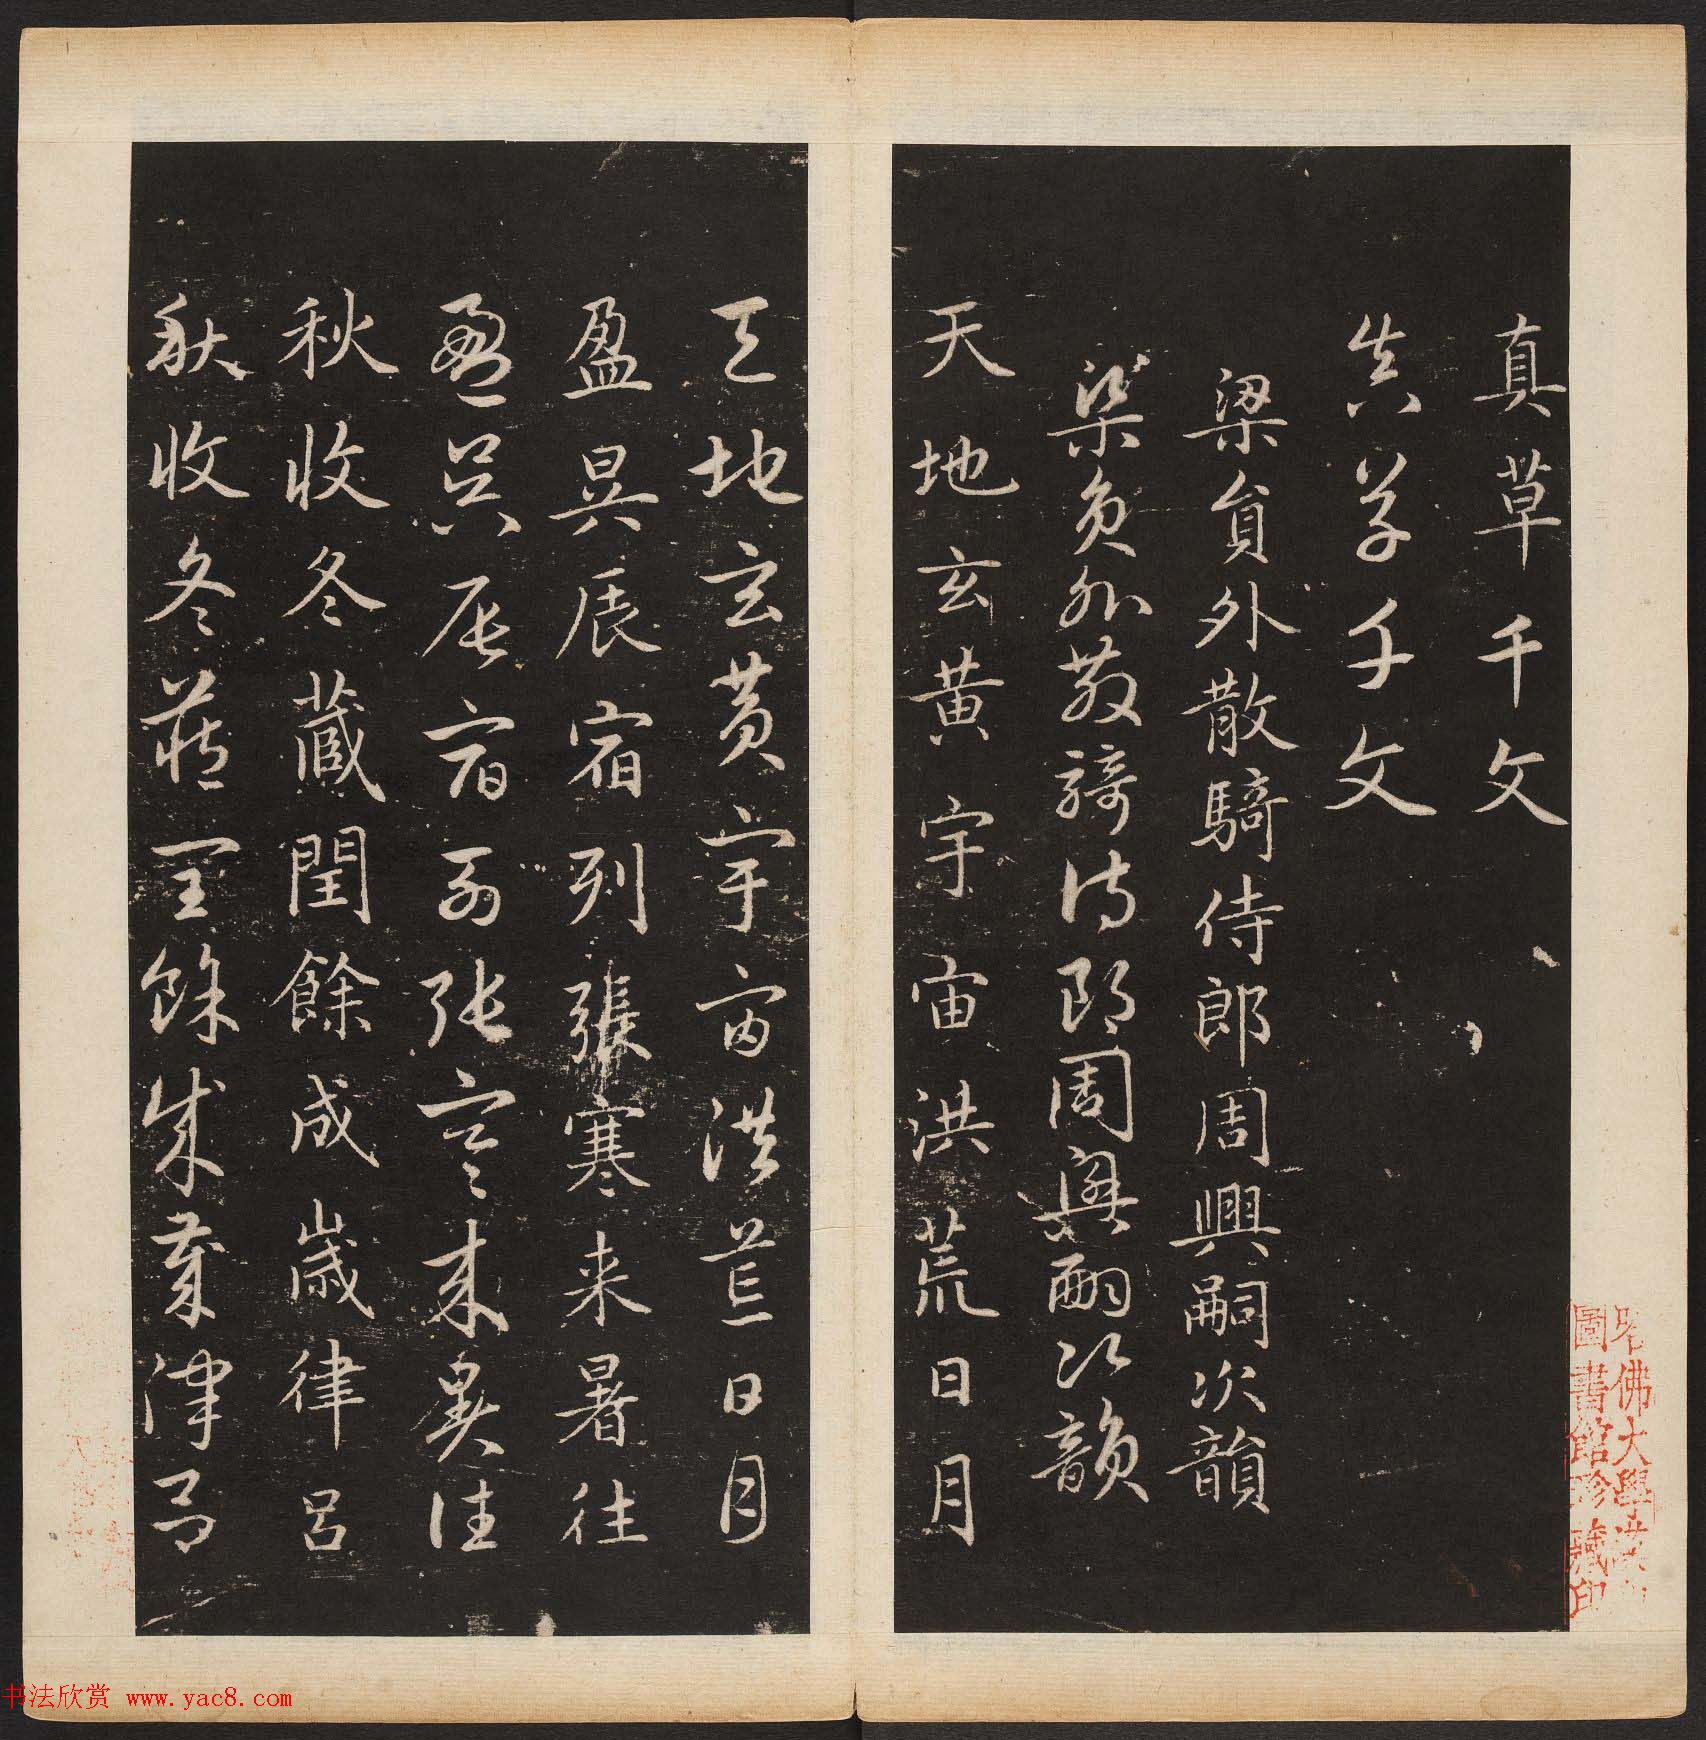 真草千文
真草千文
梁員外散騎侍郎周興嗣次韻
梁員外散騎侍郎周興嗣次韻
天地玄黃宇宙洪荒日月
天地玄黃宇宙洪荒日月
盈昃辰宿列張寒来暑往
盈昃辰宿列張寒来暑往
秋收冬藏閏餘成歲律呂
秋收冬藏閏餘成歲律呂
佛大學漢和
圖書館珍藏印
书法欣赏 www.yac8.com